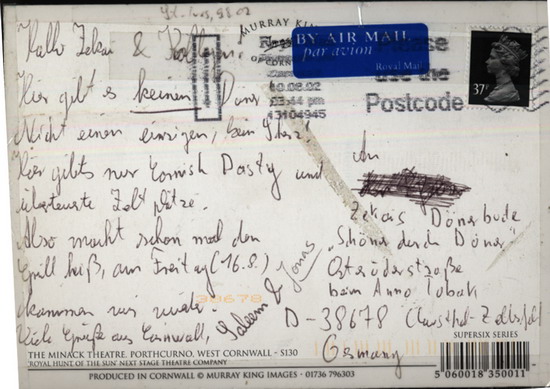 St. Ives, 9.8.02
Hallo Zekai &
Hier gibt es keinen Döner
Nicht einen einzigen, kein Scherz!
Hier gibts nur Cornish Pasty und
überteuerte Zeltplätze.
Also macht schon mal den
Grill heiß, am Freitag (16.8.)
kommen wir wieder.
Viele Grüße aus Cornwall, Saleem & Jonas
MURRAY KING
BY AIR MAIL
par avion
Royal Mail
10.08.02
03:44 pm
43104945
Please
use the
Postcode
37
An
Zekais Dönerbude
„Schöner durch Döner"
Osteröderstraße
beim Anno Tobak
D-38678 Clausthal-Zellerfeld
Germany
38678
THE MINACK THEATRE, PORTHCURNO, WEST CORNWALL - S130
'ROYAL HUNT OF THE SUN' NEXT STAGE THEATRE COMPANY
PRODUCED IN CORNWALL © MURRAY KING IMAGES · 01736 796303
SUPERSIX SERIES
5 060018 350011